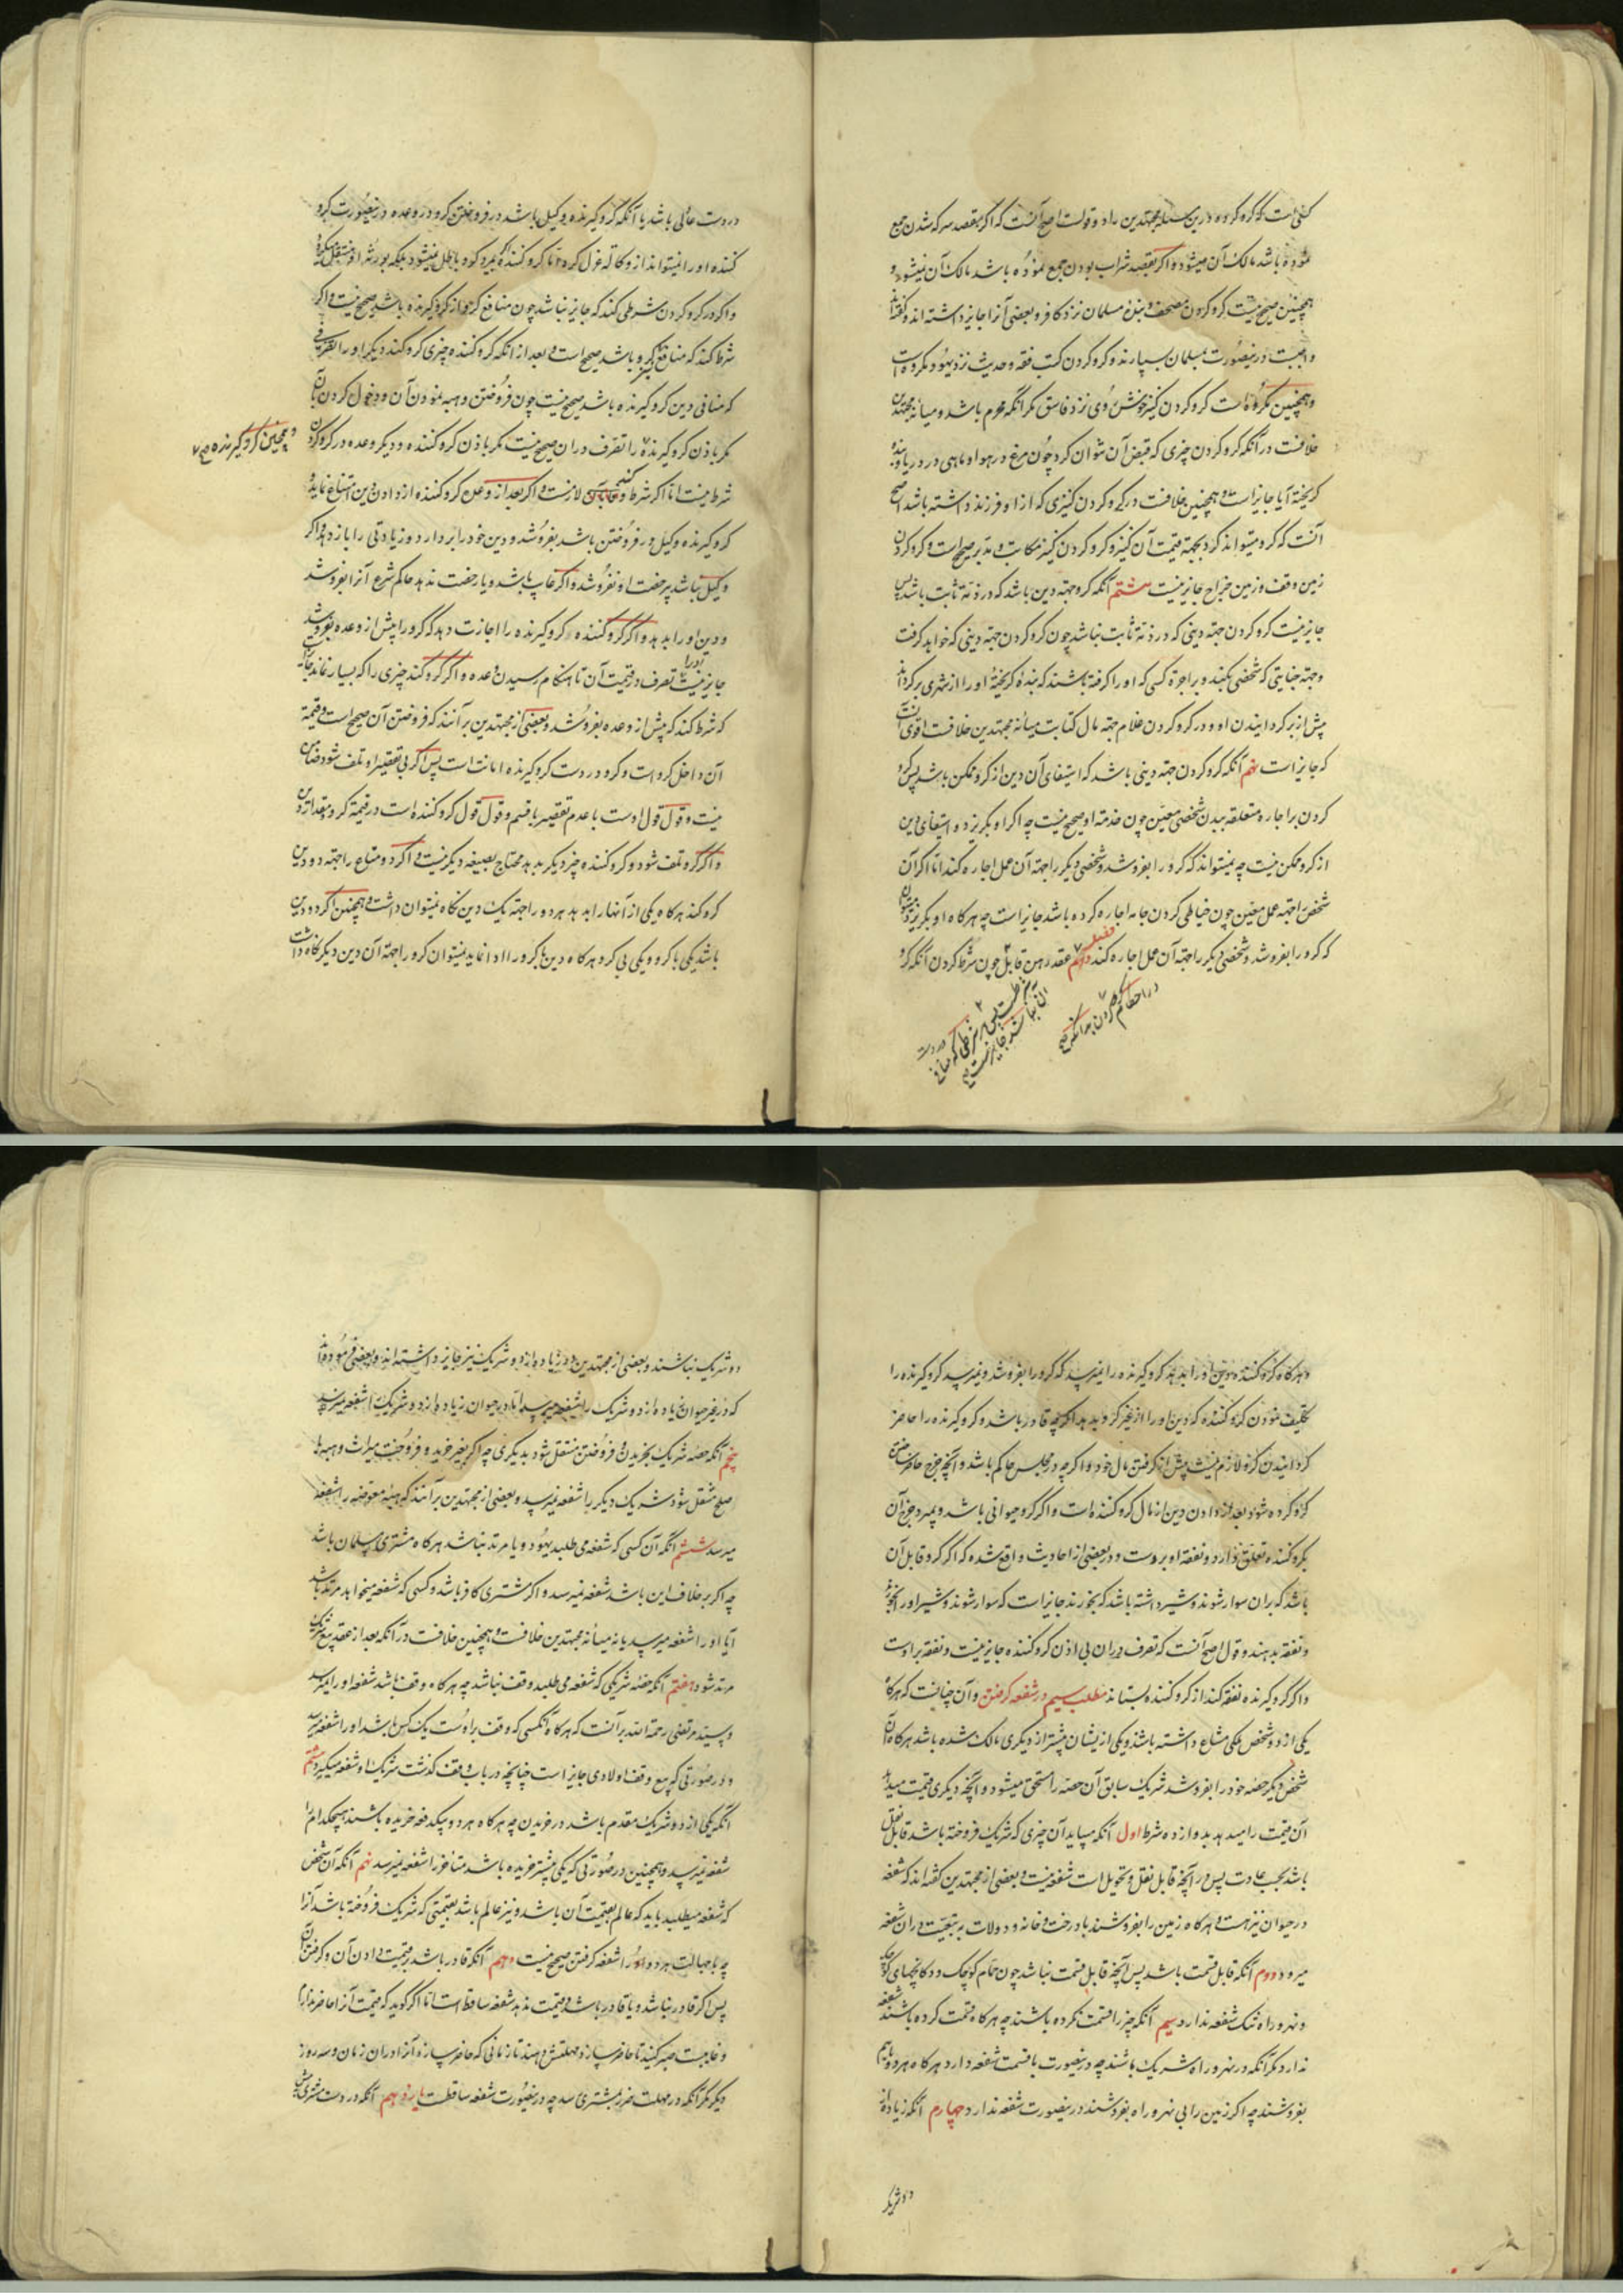 کسی است که گرو کرده و درین مسئله مجتهدین را دو قولست اصح آنست که اگر بقصد سرکه شدن جمع
نموده باشد مالک آن میشود و اگر بقصد شراب بودن جمع نموده باشد مالک آن نمیشود و
همچنین صحیح نیست گرو کردن مصحف و بندهٔ مسلمان نزد کافر و بعضی آنرا جایز داشته اند و گفته اند
واجبست درینصورت بمسلمان بسپارند و گرو کردن کتب فقه و حدیث نزد یهود مکروه است
و همچنین مکروه است گرو کردن کنیز خوش روی نزد فاسق مگر آنکه محرم باشد و میانه مجتهدین
خلافست در آنکه گرو کردن چیزی که قبض آن نتوان کرد چون مرغ در هوا و ماهی در دریا و بندهٔ
گریخته آیا جایز است و همچنین خلافست در گرو کردن کنیزی که ازو فرزند داشته باشد اصح
آنست که گرو میتواند کرد بجهة قیمت آن کنیز و گرو کردن کنیز مکاتب و مدبر صحیح است و گرو کردن
زمین وقف و زمین خراج جایز نیست هشتم آنکه گرو جهة دین باشد که در ذمه ثابت باشد پس
جایز نیست گرو کردن جهة دینی که در ذمه ثابت نباشد چون گرو کردن جهة دینی که خواهد گرفت
و جهة جنایتی که شخصی بکند و بر اجرة کسی که او را گرفته باشند که بندهٔ گریختهٔ او را از شهری برگرداند
پیش از برگردانیدن او و در گرو کردن غلام جهة مال کتابت میانه مجتهدین خلافست اقوی آنست
که جایز است نهم آنکه گرو کردن جهة دینی باشد که استیفای آن دین از گرو ممکن باشد پس گرو
کردن بر اجاره متعلقه ببدن شخصی معین چون خدمة او صحیح نیست چه اگر او بگریزد و استیفای دین
از گرو ممکن نیست چه نمیتواند که گرو را بفروشد و شخصی دیگر را جهة آن عمل اجاره کند اما اگر آن
شخص را جهة عمل معین چون خیاطی کردن جامه اجاره کرده باشد جایز است چه هرگاه او بگریزد میتوان
که گرو را بفروشد و شخصی دیگر را جهة آن عمل اجاره کند دهم عقد رهن قابل چون شرط کردن آنکه گرو
در دست عالی باشد یا آنکه گرو گیرنده وکیل باشد در فروختن گرو در وعده درینصورت گرو
کننده او را نمیتواند از وکاله عزل کرد تا گرو کننده نمیرد که وکالة باطل نمیشود بلکه بورثه او منتقل میگردد
و اگر در گرو کردن شرطی کند که جایز نباشد چون منافع گرو از گرو گیرنده باشد صحیح نیست و اگر
شرط کند که منافع گرو باشد صحیح است و بعد از آنکه گرو کننده چیزی گرو کند دیگر او را تصرفی
که منافی دین گرو گیرنده باشد صحیح نیست چون فروختن و هبه نمودن آن و دخول کردن بآن
مگر باذن گرو گیرنده را تصرف در آن صحیح نیست مگر باذن گرو کننده و دیگر وعده در گرو کردن
و همچنین گرو گیرنده
شرط نیست اما اگر شرط کند لازمست و اگر بعد از وعده گرو کننده از دادن دین امتناع نماید و
گرو گیرنده وکیل در فروختن باشد بفروشد و دین خود را بردارد و زیادتی را باز دهد و اگر
وکیل نباشد برخصت او بفروشد و اگر غایب باشد و یا رخصت ندهد حاکم شرع آنرا بفروشد
و دین او را بدهد و اگر گرو کننده گرو گیرنده را اجازت دهد که گرو را پیش از وعده بفروشد
جایز نیست او را تصرف در قیمت آن تا هنگام رسیدن وعده و اگر گرو کند چیزی را که بسیار نماند
که شرط کند که پیش از وعده بفروشد و بعضی از مجتهدین بر آنند که فروختن آن صحیح است و قیمة
آن داخل گرو است و گرو در دست گرو گیرنده امانت است پس اگر بی تقصیر او تلف شود ضامن
نیست و قول قول اوست با عدم تقصیر با قسم و قول قول گرو کننده است در قیمة گرو و مقدار دین
و اگر گرو تلف شود و گرو کننده چیز دیگر بدهد محتاج بصیغه دیگر نیست و اگر دو متاع را جهة دو دین
گرو کند هرگاه یکی از آنها را بدهد هر دو را جهة یک دین نگاه نمیتوان داشت و همچنین اگر دو دین
باشد یکی با گرو و یکی بی گرو هرگاه دین با گرو را ادا نماید نمیتوان گرو را جهة آن دین دیگر نگاه داشت
و هرگاه گرو کننده دین او را بدهد گرو گیرنده را نمیرسد که گرو را بفروشد و نمیرسد گرو گیرنده را
تکلیف نمودن گرو کننده که دین او را از غیر گرو بدهد اگر چه قادر باشد و گرو گیرنده را حاضر
گردانیدن گرو لازم نیست پیش از گرفتن مال خود و اگر چه در مجلس حاکم باشد و آنچه خرج حاضر ساختن
گرو کرده شود بعد از دادن دین از مال گرو کننده است و اگر گرو حیوانی باشد و بمیرد خرج آن
بگرو کننده تعلق دارد و نفقه او برو است و در بعضی از احادیث واقع شده که اگر گرو قابل آن
باشد که بر آن سوار شوند و شیر داشته باشد که بخورند جایز است که سوار شوند و شیر او را بخورند
و نفقه بدهند و قول اصح آنست که تصرف در آن بی اذن گرو کننده جایز نیست و نفقه بر اوست
و اگر گرو گیرنده نفقه کند از گرو کننده بستاند مطلب سیم در شفعه گرفتن و آن چنانست که هرگاه
یکی از دو شخص ملکی مشاع داشته باشند و یکی از ایشان پیشتر از دیگری مالک شده باشد هرگاه آن
شخص دیگر حصه خود را بفروشد شریک سابق آن حصه را مستحق میشود و آنچه دیگری قیمت میدهد
آن قیمت را میدهد بده و از ده شرط اول آنکه میباید آن چیزی که شریک فروخته باشد قابل نقل
باشد بحسب عادت پس در آنچه قابل نقل و تحویل است شفعه نیست و بعضی از مجتهدین گفته اند که شفعه
در حیوان نیز هست و هرگاه زمین را بفروشند با درخت و خانه و دولاب به تبعیت در آن شفعه
میرود دوم آنکه قابل قسمت باشد پس آنچه قابل قسمت نباشد چون حمام کوچک و دکانچهای کوچک
و نهر و راه تنک شفعه ندارد سیم آنکه چیز را قسمت نکرده باشند چه هرگاه قسمت کرده باشند شفعه
ندارد مگر آنکه در نهر و راه شریک باشند چه درینصورت با قسمت شفعه دارد هرگاه هر دو را با هم
بفروشند چه اگر زمین را بی نهر و راه بفروشند درینصورت شفعه ندارد چهارم آنکه زیاده از
دو شریک
دو شریک نباشند و بعضی از مجتهدین در زیاده از دو شریک نیز جایز داشته اند و بعضی فرموده اند
که در غیر حیوان زیاده از دو شریک را شفعه میرسد اما در حیوان زیاده از دو شریک را شفعه نمیرسد
پنجم آنکه حصه شریک بخریدن و فروختن منتقل شود بدیگری چه اگر بغیر خرید و فروخت چون میراث و هبه یا
صلح منتقل شود شریک دیگر را شفعه نمیرسد و بعضی از مجتهدین بر آنند که هبه معوضه را شفعه
میرسد ششم آنکه آن کسی که شفعه می طلبد یهود و یا مرتد نباشد هرگاه مشتری مسلمان باشد
چه اگر بر خلاف این باشد شفعه نمیرسد و اگر مشتری کافر باشد و کسی که شفعه میخواهد مرتد باشد
آیا او را شفعه میرسد یا نه میانه مجتهدین خلافست و همچنین خلافست در آنکه بعد از عقد بیع شریک
مرتد شود هفتم آنکه حصه شریکی که شفعه می طلبد وقف نباشد چه هرگاه وقف باشد شفعه او را نمیرسد
و سید مرتضی رحمة الله بر آنست که هرگاه آنکسی که وقف بر اوست یک کس باشد او را شفعه میرسد
و در صورتی که بیع وقف اولادی جایز است چنانچه در باب وقف گذشت شریک او شفعه میگیرد هشتم
آنکه یکی از دو شریک مقدم باشد در خریدن چه هرگاه هر دو بیکدفعه خریده باشند هیچکدام را
شفعه نمیرسد و همچنین در صورتی که یکی پیشتر خریده باشد متأخر را شفعه نمیرسد نهم آنکه آن شخص
که شفعه میطلبد باید که عالم بقیمت آن باشد و نیز عالم باشد بقیمتی که شریک فروخته باشد آنرا
چه با جهالت هر دو او را شفعه گرفتن صحیح نیست دهم آنکه قادر باشد بر قیمت دادن آن و گرفتن آن
پس اگر قادر نباشد و یا قادر باشد و قیمت ندهد شفعه ساقط است اما اگر گوید که قیمت آنرا حاضر ندارم
و غایبست صبر کنید تا حاضر سازد مهلتش دهند تا زمانی که حاضر سازد آنرا در آن زمان و سه روز
دیگر مگر آنکه در مهلت ضرر بمشتری رسد چه درینصورت شفعه ساقطست یازدهم آنکه در دست مشتری